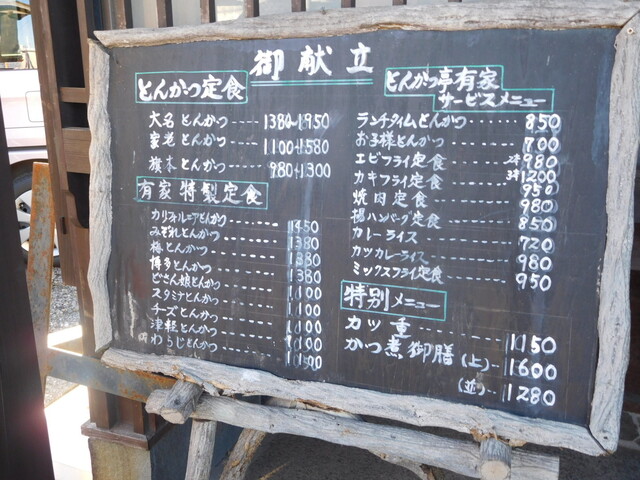 御献立
とんかつ定食
大名とんかつ----1380~1950
家老とんかつ----1100~1580
旗本とんかつ----980~1300
有家特製定食
カリフォルニアとんかつ 1450
みぞれとんかつ 1380
梅とんかつ 1380
博多とんかつ 1380
どさん娘とんかつ 1380
スタミナとんかつ
チーズとんかつ
津軽とんかつ
わらじとんかつ
とんかつ亭有家
サービスメニュー
ランチタイムとんかつ 850
お子様とんかつ 700
エビフライ定食 2本 980
カキフライ定食 1200
950
焼肉定食 980
ハンバーグ定食 850
カレーライス 720
カツカレーライス 980
ミックスフライ定食 950
特別メニュー
カツ重 1150
かつ煮御膳(上) 1600
(並) 1280